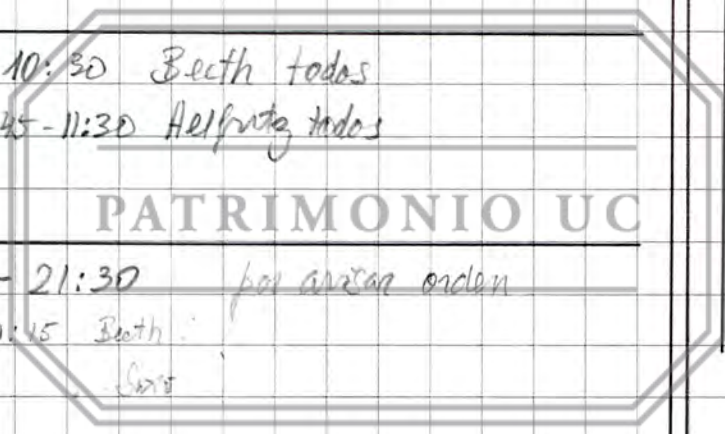 10:30 Beeth todos
45-11:30 Helfritz todos
PATRIMONIO UC
- 21:30 por avisar orden
:15 Beeth.